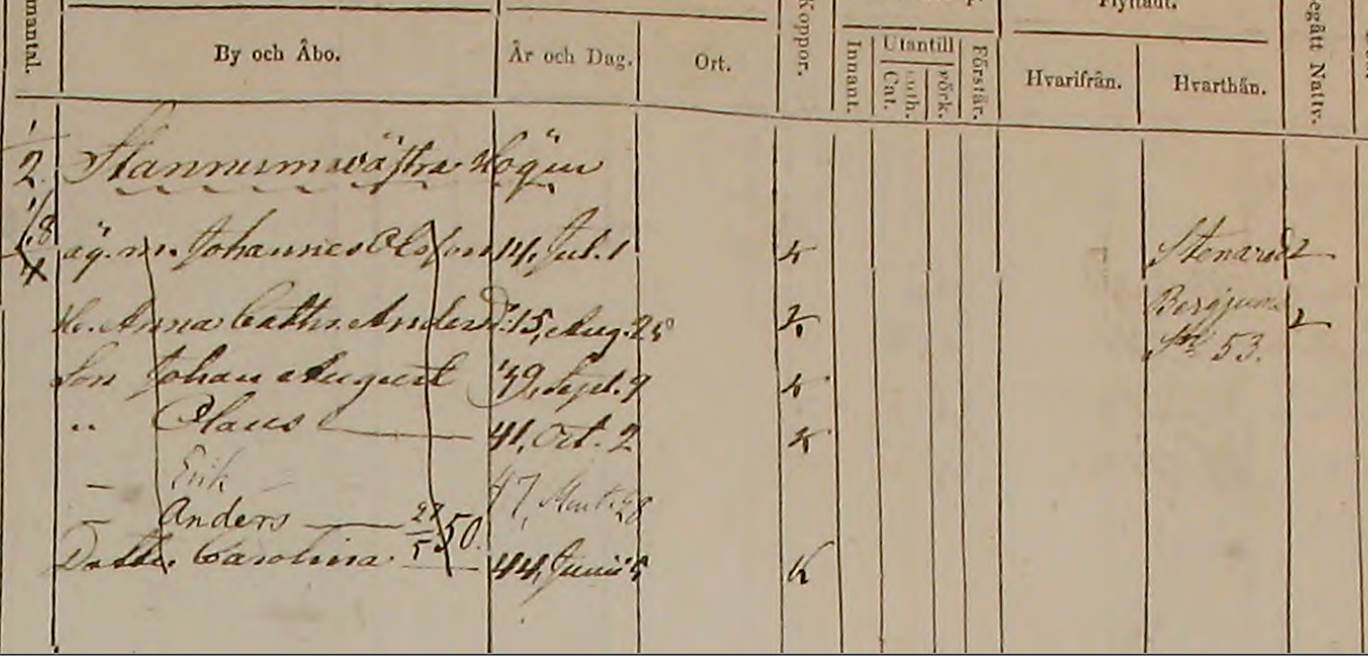 Flyttadt.
mantal.
By och Åbo.
År och Dag.
Ort.
Koppor.
Innant.
Utantill
Cat.
Luth.
Förk.
Förstår.
Hvarifrån.
Hvarthän.
egått Nattv.
2 Stannum västra
1/8 äg. m. Johannes Olsson 14, Jul. 1 Stenared 2
H. Anna Cath. Andersd: 15, Aug. Bergjum 2
53.
Son Johan August 39, Sept. 9
" Claus 41, Oct. 2
— Erik 47,
— Anders 27/5 50.
Dotter Carolina 44, Junii 5